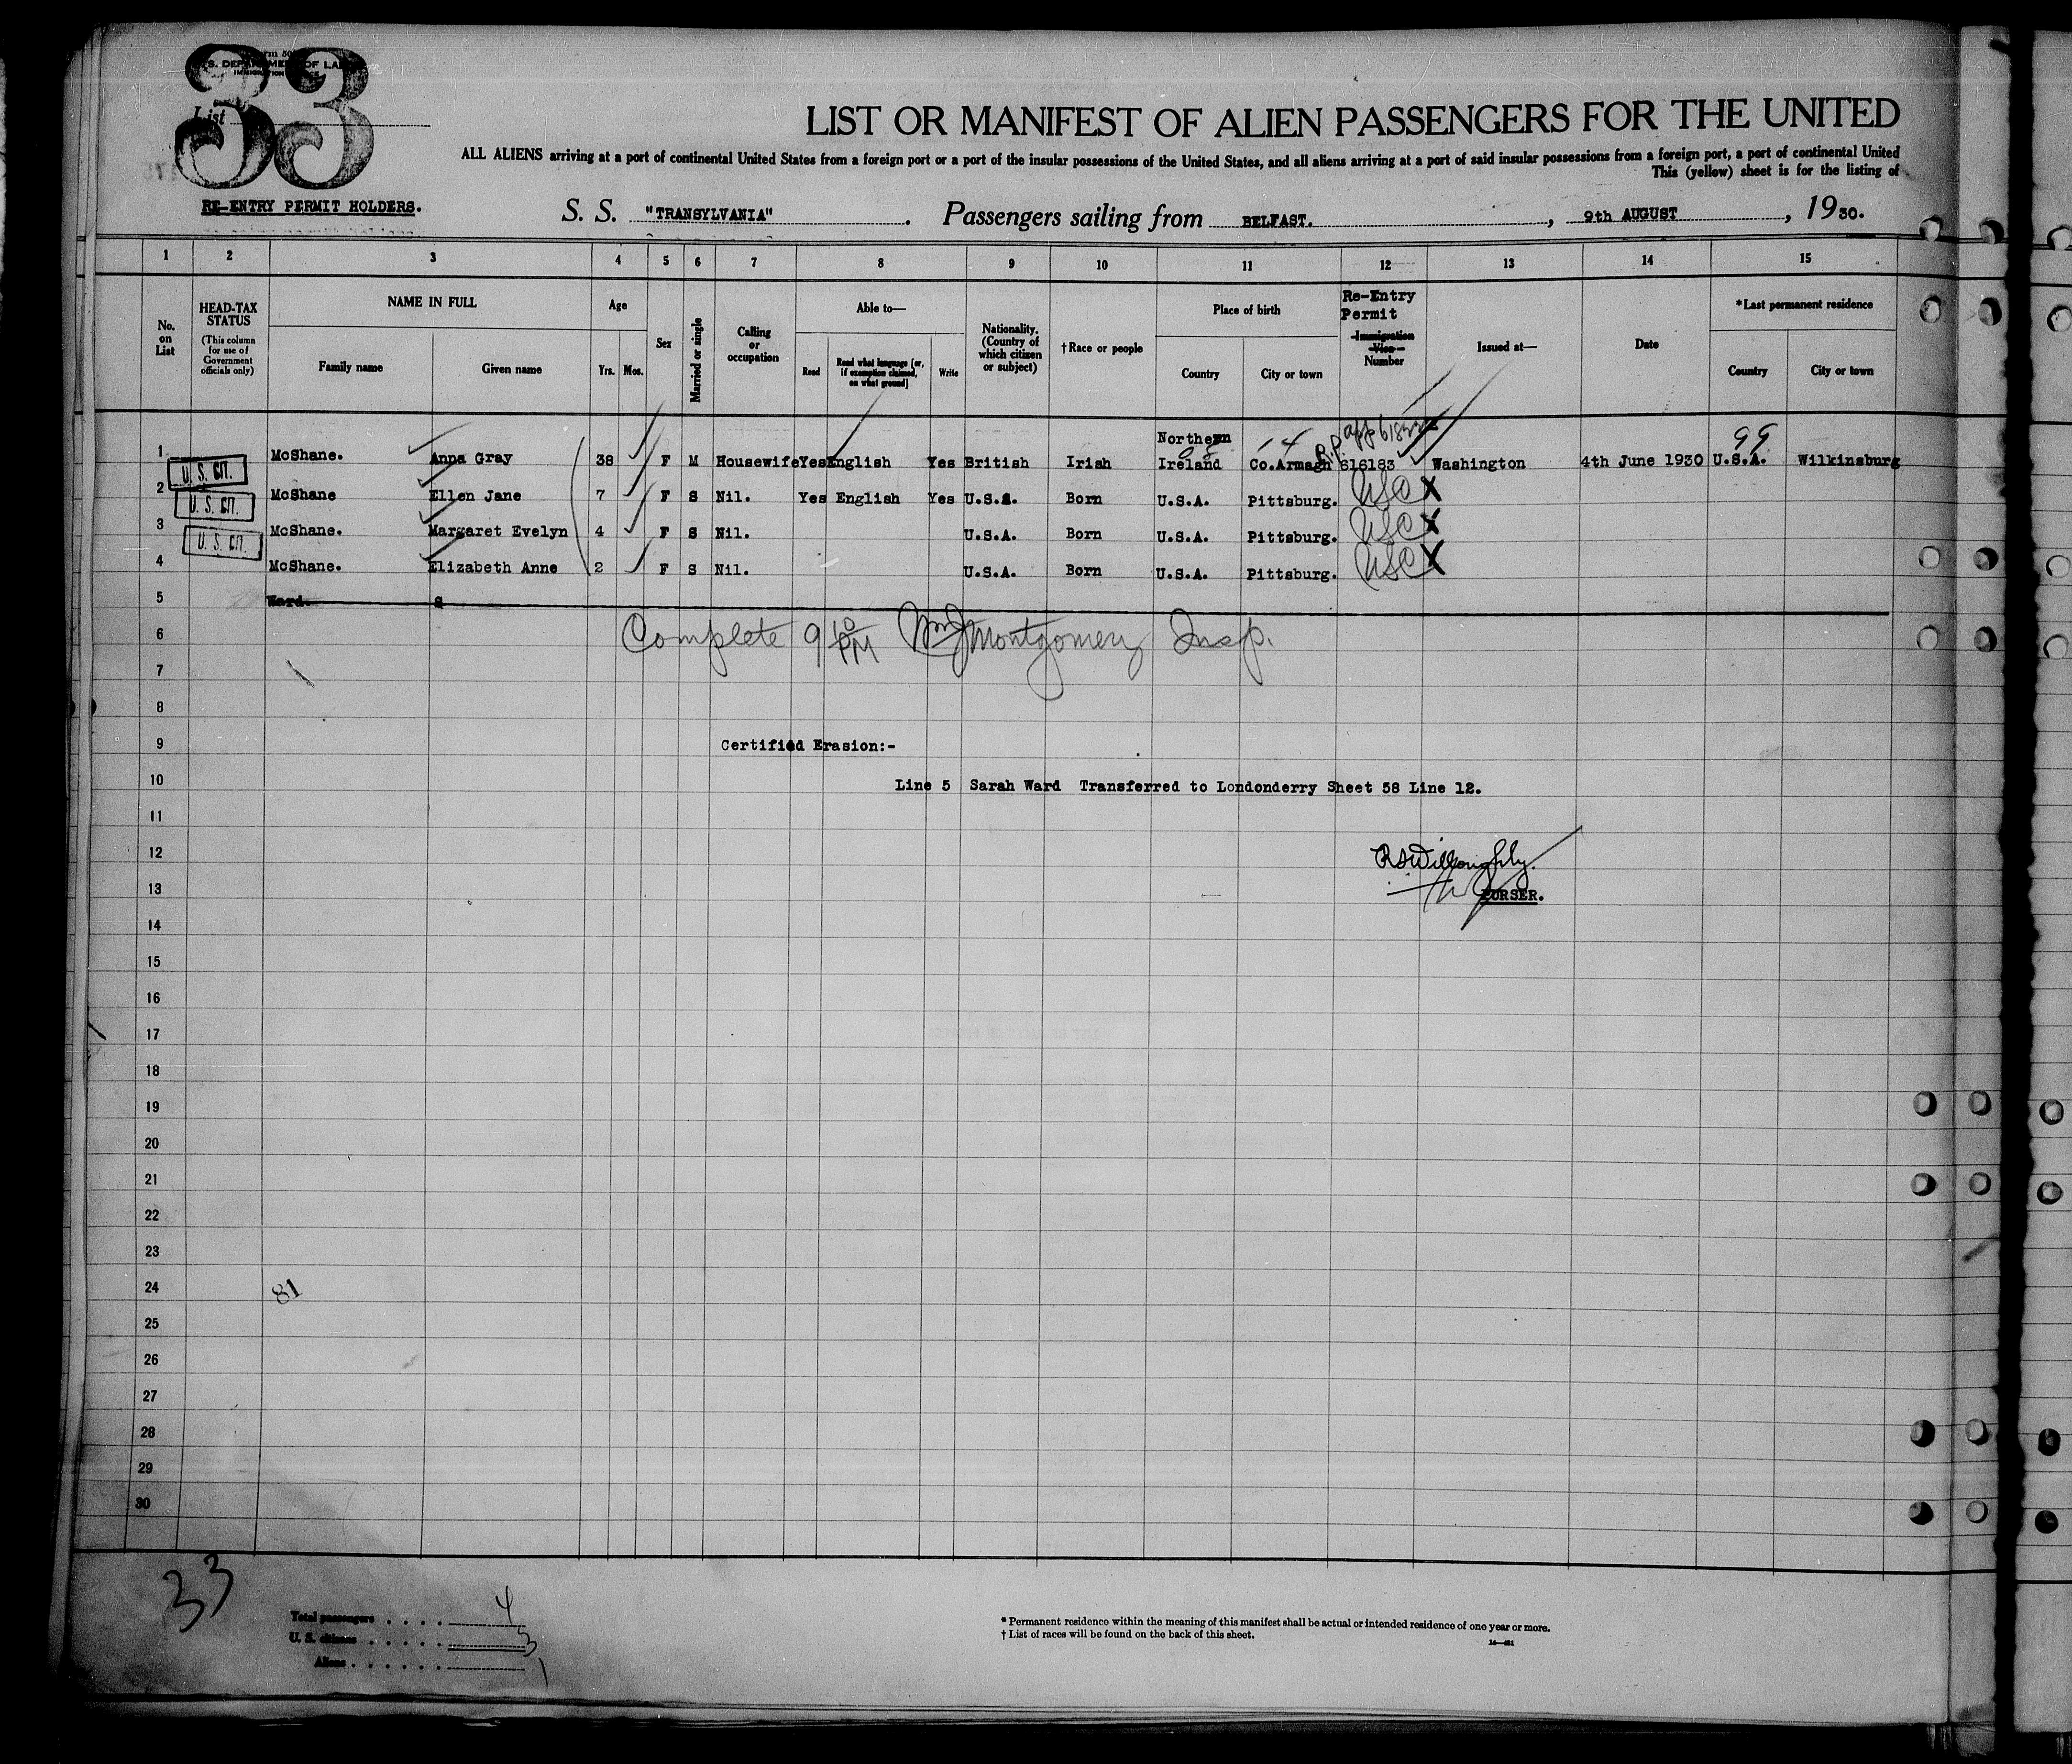 33
List
LIST OR MANIFEST OF ALIEN PASSENGERS FOR THE UNITED
ALL ALIENS arriving at a port of continental United States from a foreign port or a port of the insular possessions of the United States, and all aliens arriving at a port of said insular possessions from a foreign port, a port of continental United
This (yellow) sheet is for the listing of
RE-ENTRY PERMIT HOLDERS. S. S. "TRANSYLVANIA" . Passengers sailing from BELFAST. , 9th AUGUST , 1930.
1 2 3 4 5 6 7 8 9 10 11 12 13 14 15
No. on List
HEAD-TAX STATUS
(This column for use of Government officials only)
NAME IN FULL
Family name Given name
Age
Yrs. Mos.
Sex
Married or single
Calling or occupation
Able to—
Read Read what language [or, if exemption claimed, on what ground] Write
Nationality. (Country of which citizen or subject)
†Race or people
Place of birth
Country City or town
Re-Entry Permit
Immigration Visa
Number
Issued at—
Date
*Last permanent residence
Country City or town
1 McShane. Anna Gray 38 F M Housewife Yes English Yes British Irish Northern Ireland Co.Armagh 616183 Washington 4th June 1930 U.S.A. Wilkinsburg
99
U. S. CIT.
2 McShane Ellen Jane 7 F S Nil. Yes English Yes U.S.A. Born U.S.A. Pittsburg. USC X
U. S. CIT.
3 McShane. Margaret Evelyn 4 F S Nil. U.S.A. Born U.S.A. Pittsburg. USC X
U. S. CIT.
4 McShane. Elizabeth Anne 2 F S Nil. U.S.A. Born U.S.A. Pittsburg. USC X
5 Ward. S
6 Complete 9 10 PM Montgomery Insp.
7
8
9 Certified Erasion:-
10 Line 5 Sarah Ward Transferred to Londonderry Sheet 58 Line 12.
11
12 RSWilloughby.
13 PURSER.
14
15
16
17
18
19
20
21
22
23
24 81
25
26
27
28
29
30
33
Total passengers 4
U. S. citizens 3
Aliens 1
* Permanent residence within the meaning of this manifest shall be actual or intended residence of one year or more.
† List of races will be found on the back of this sheet.